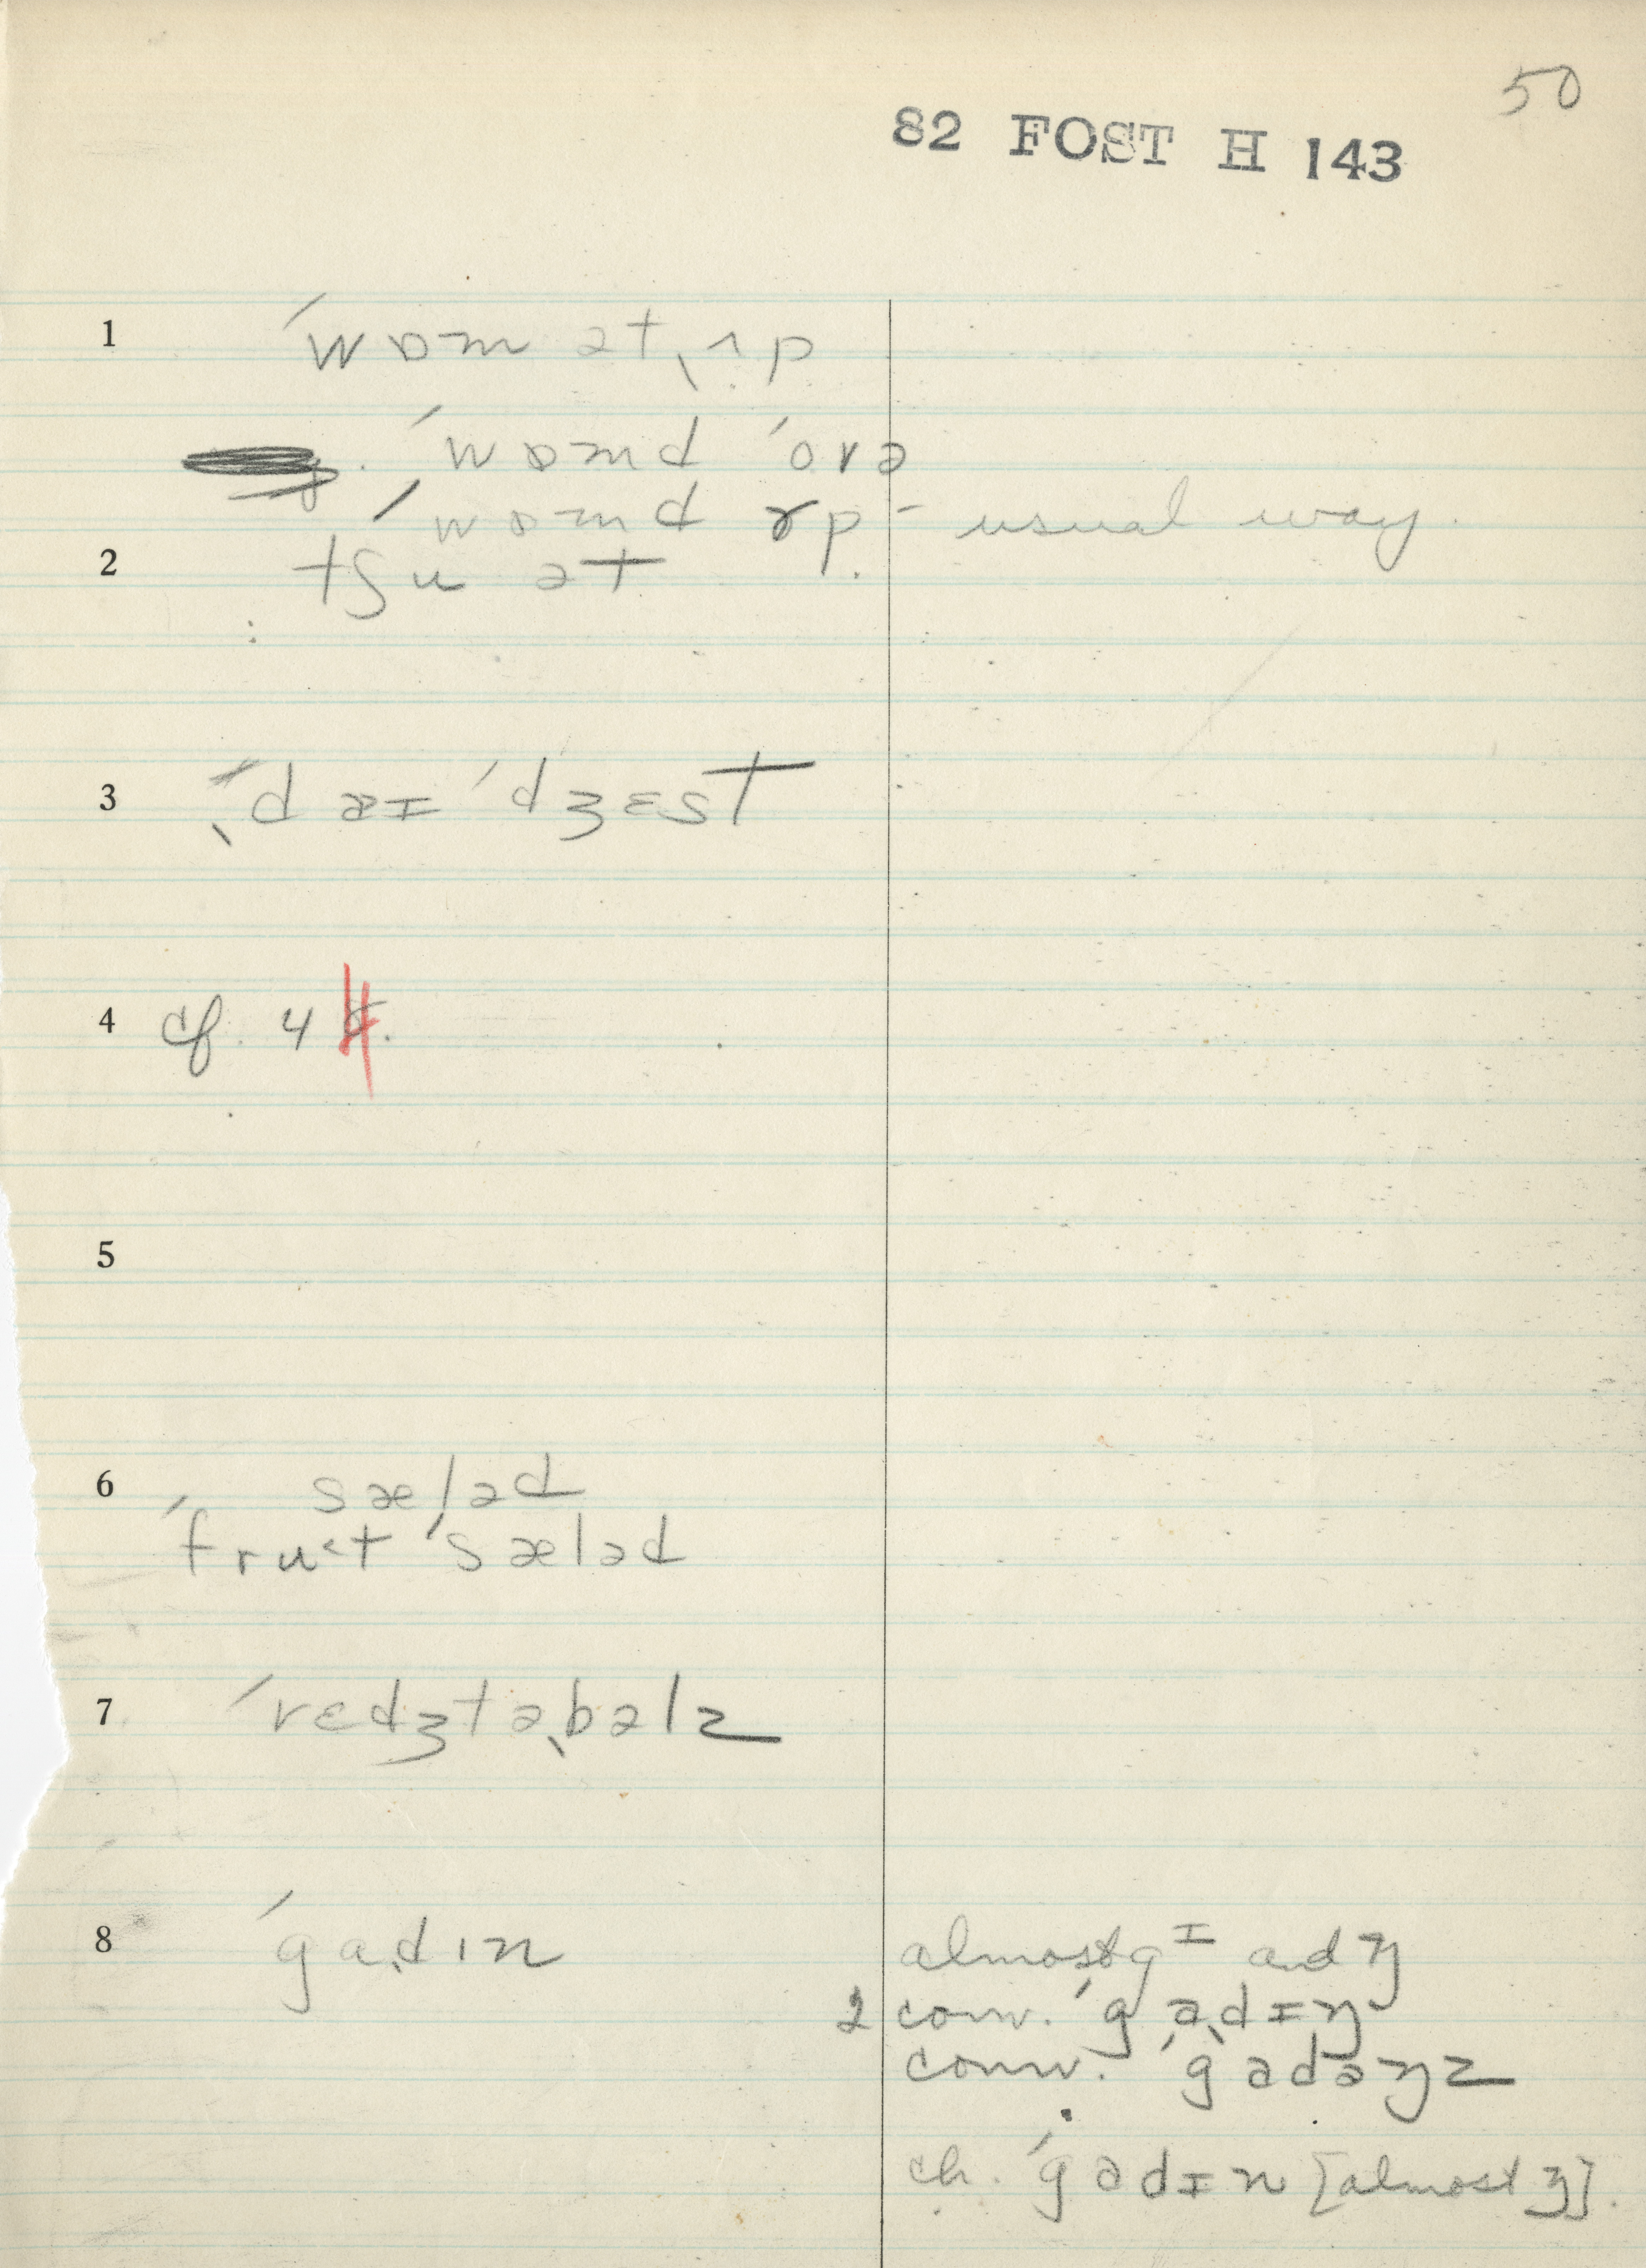 50
82 FOST H 143
1 ˈwɒm ət ˌʌp
ˈwɒmd ˈovə
ˈwɒmd ʌp - usual way.
2 tʃu ət
3 ˈdaɪ ˈdʒɛst
4 cf. 4
5
6 sæləd
ˈfrut ˈsæləd
7 ˈvɛdʒtəˌbəlz
8 ˈgadɪn
almost gᶦ and ŋ
2 conv. ˈgadɪŋ
conv. ˈgadəŋz
ch. ˈgadɪn [almost ŋ].